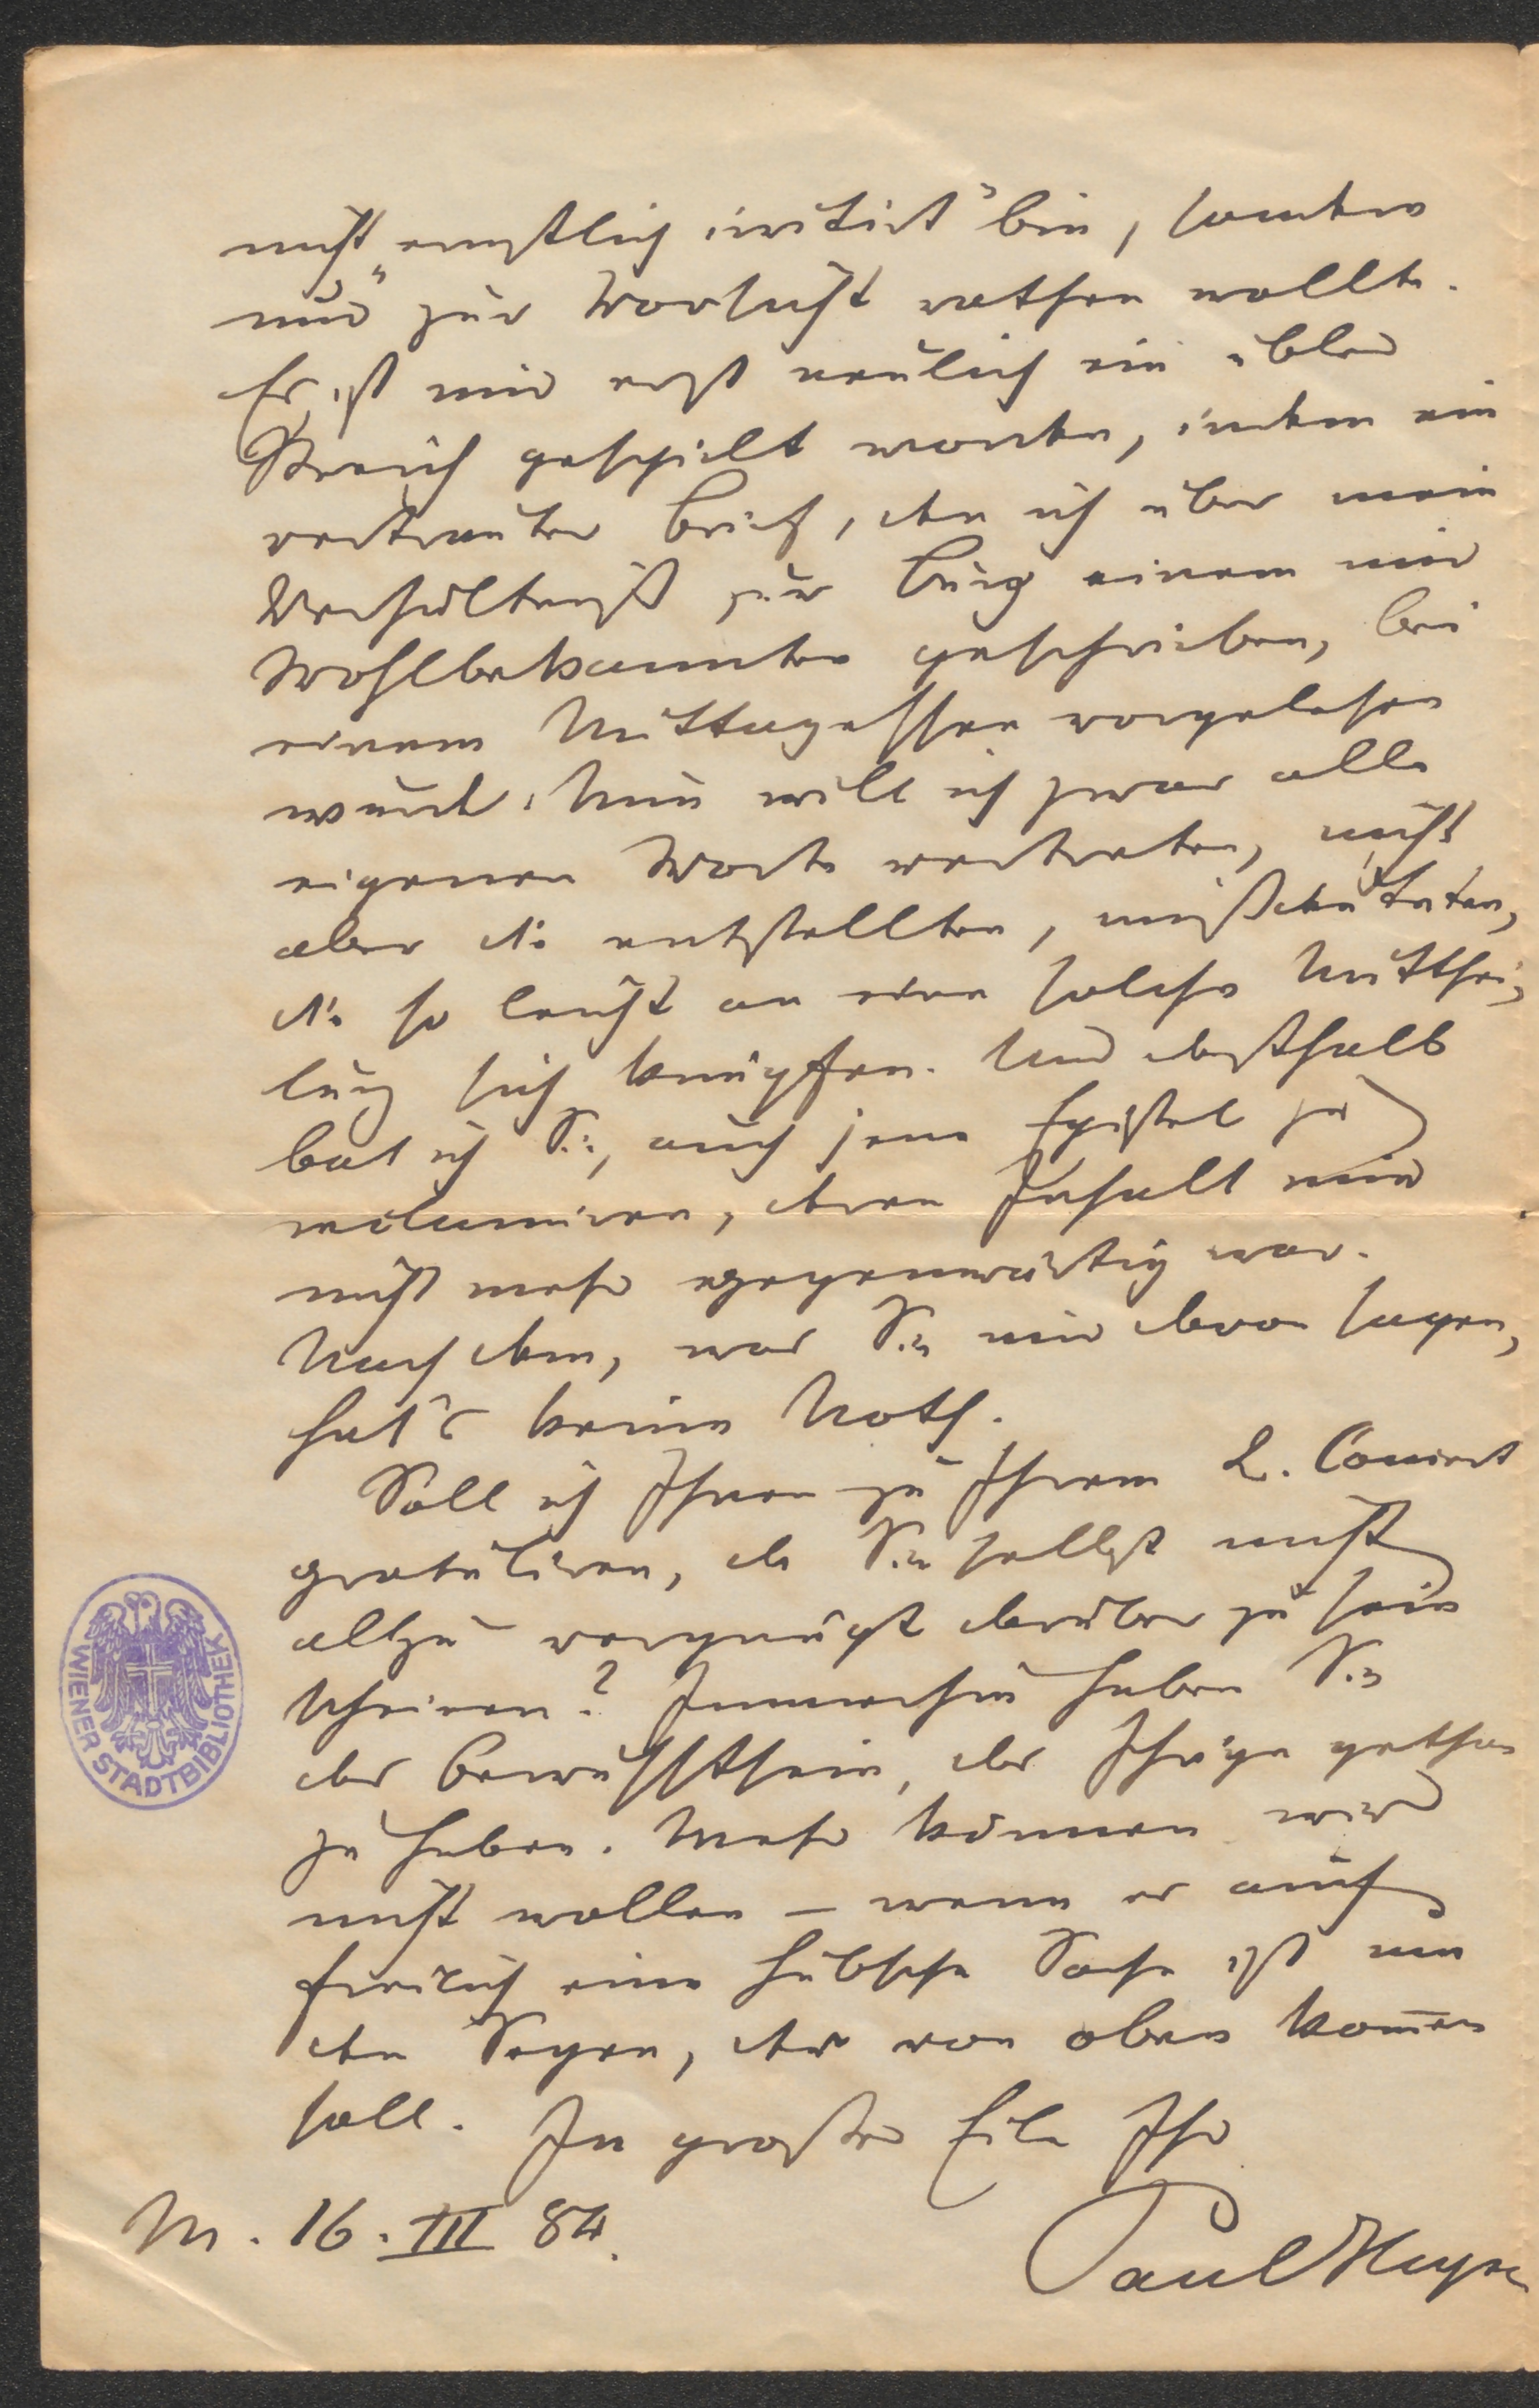 nicht „ernstlich irritirt" bin, sondern
nur zur Vorsicht rathen wollte.
Es ist mir erst neulich ein übler
Streich gespielt worden, indem ein
vertrauter Brief, den ich über mein
Verhältniß zur Burg einem mir
Wohlbekannten geschrieben, bei
einem Mittagessen vorgelesen
wurde. Nun will ich zwar alle
eigenen Worte vertreten, nicht
aber die entstellten, mißdeuteten,
die so leicht an eine solche Mitthei-
lung sich knüpfen. Und deßhalb
bat ich Sie, auch jene Epistel zu
reclamiren, deren Inhalt mir
nicht mehr gegenwärtig war.
Nach dem, was Sie mir davon sagen,
hat's keine Noth.
Soll ich Ihnen zu Ihrem L. Concert
gratuliren, da Sie selbst nicht
allzu vergnügt darüber zu sein
scheinen? Immerhin haben Sie
das Bewußtsein, das Ihrige gethan
zu haben. Mehr können wir
nicht wollen – wenn es auch
freilich eine hübsche Sache ist um
den Segen, der von oben kom̄en
soll. In großer Eile Ihr
M. 16. III 84.
Paul Heyse
WIENER STADTBIBLIOTHEK